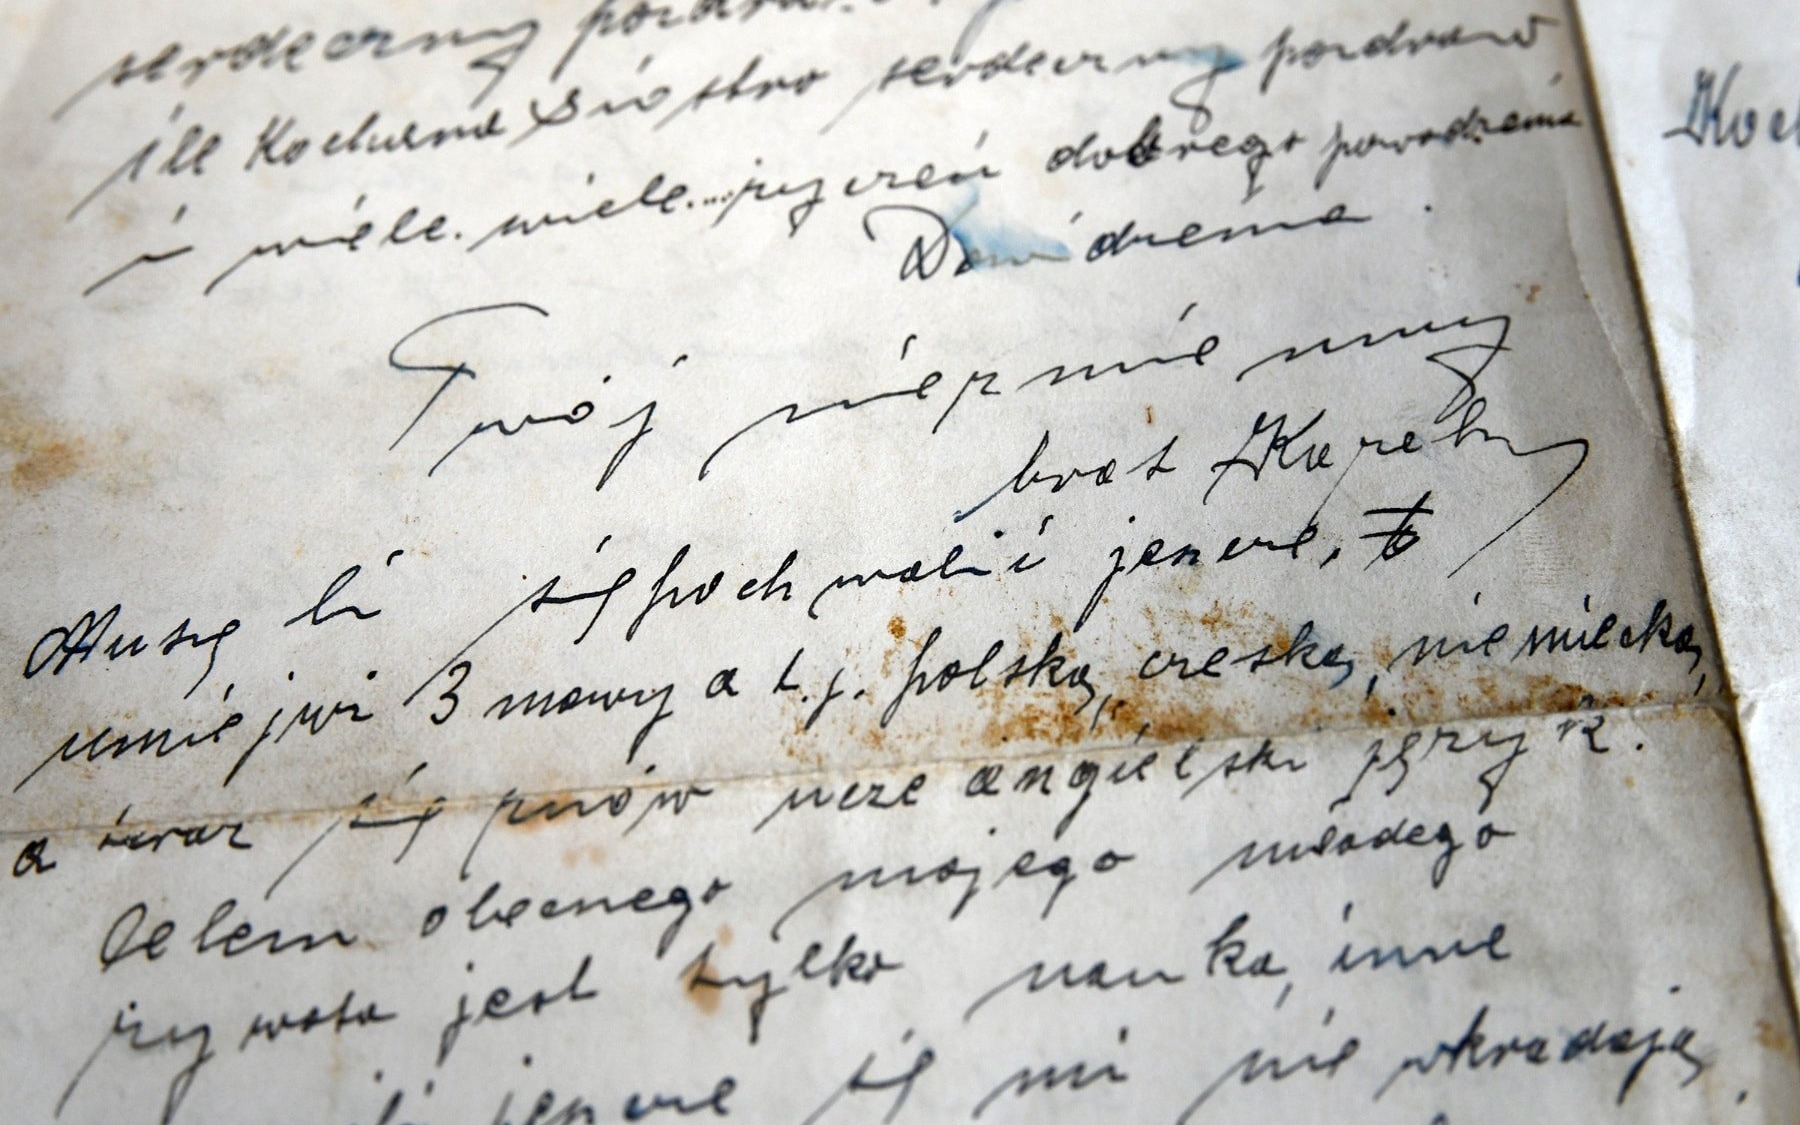 serdeczny
śle Kochana Siostro serdeczny pozdrow
i wiele. wiele....życzeń dobrego powodzenia
Do widzenia.
Twój niezmienny
brat
Muszę Ci się pochwalić jeszcze, to
umię już 3 mowy a t.j. polską, czeską, niemiecką,
a teraz się znów ucze angielski język.
Celem obecnego mojego młodego
życiowata jest tylko nauka, inne
jeszcze się mi nie wkradają,
Koch